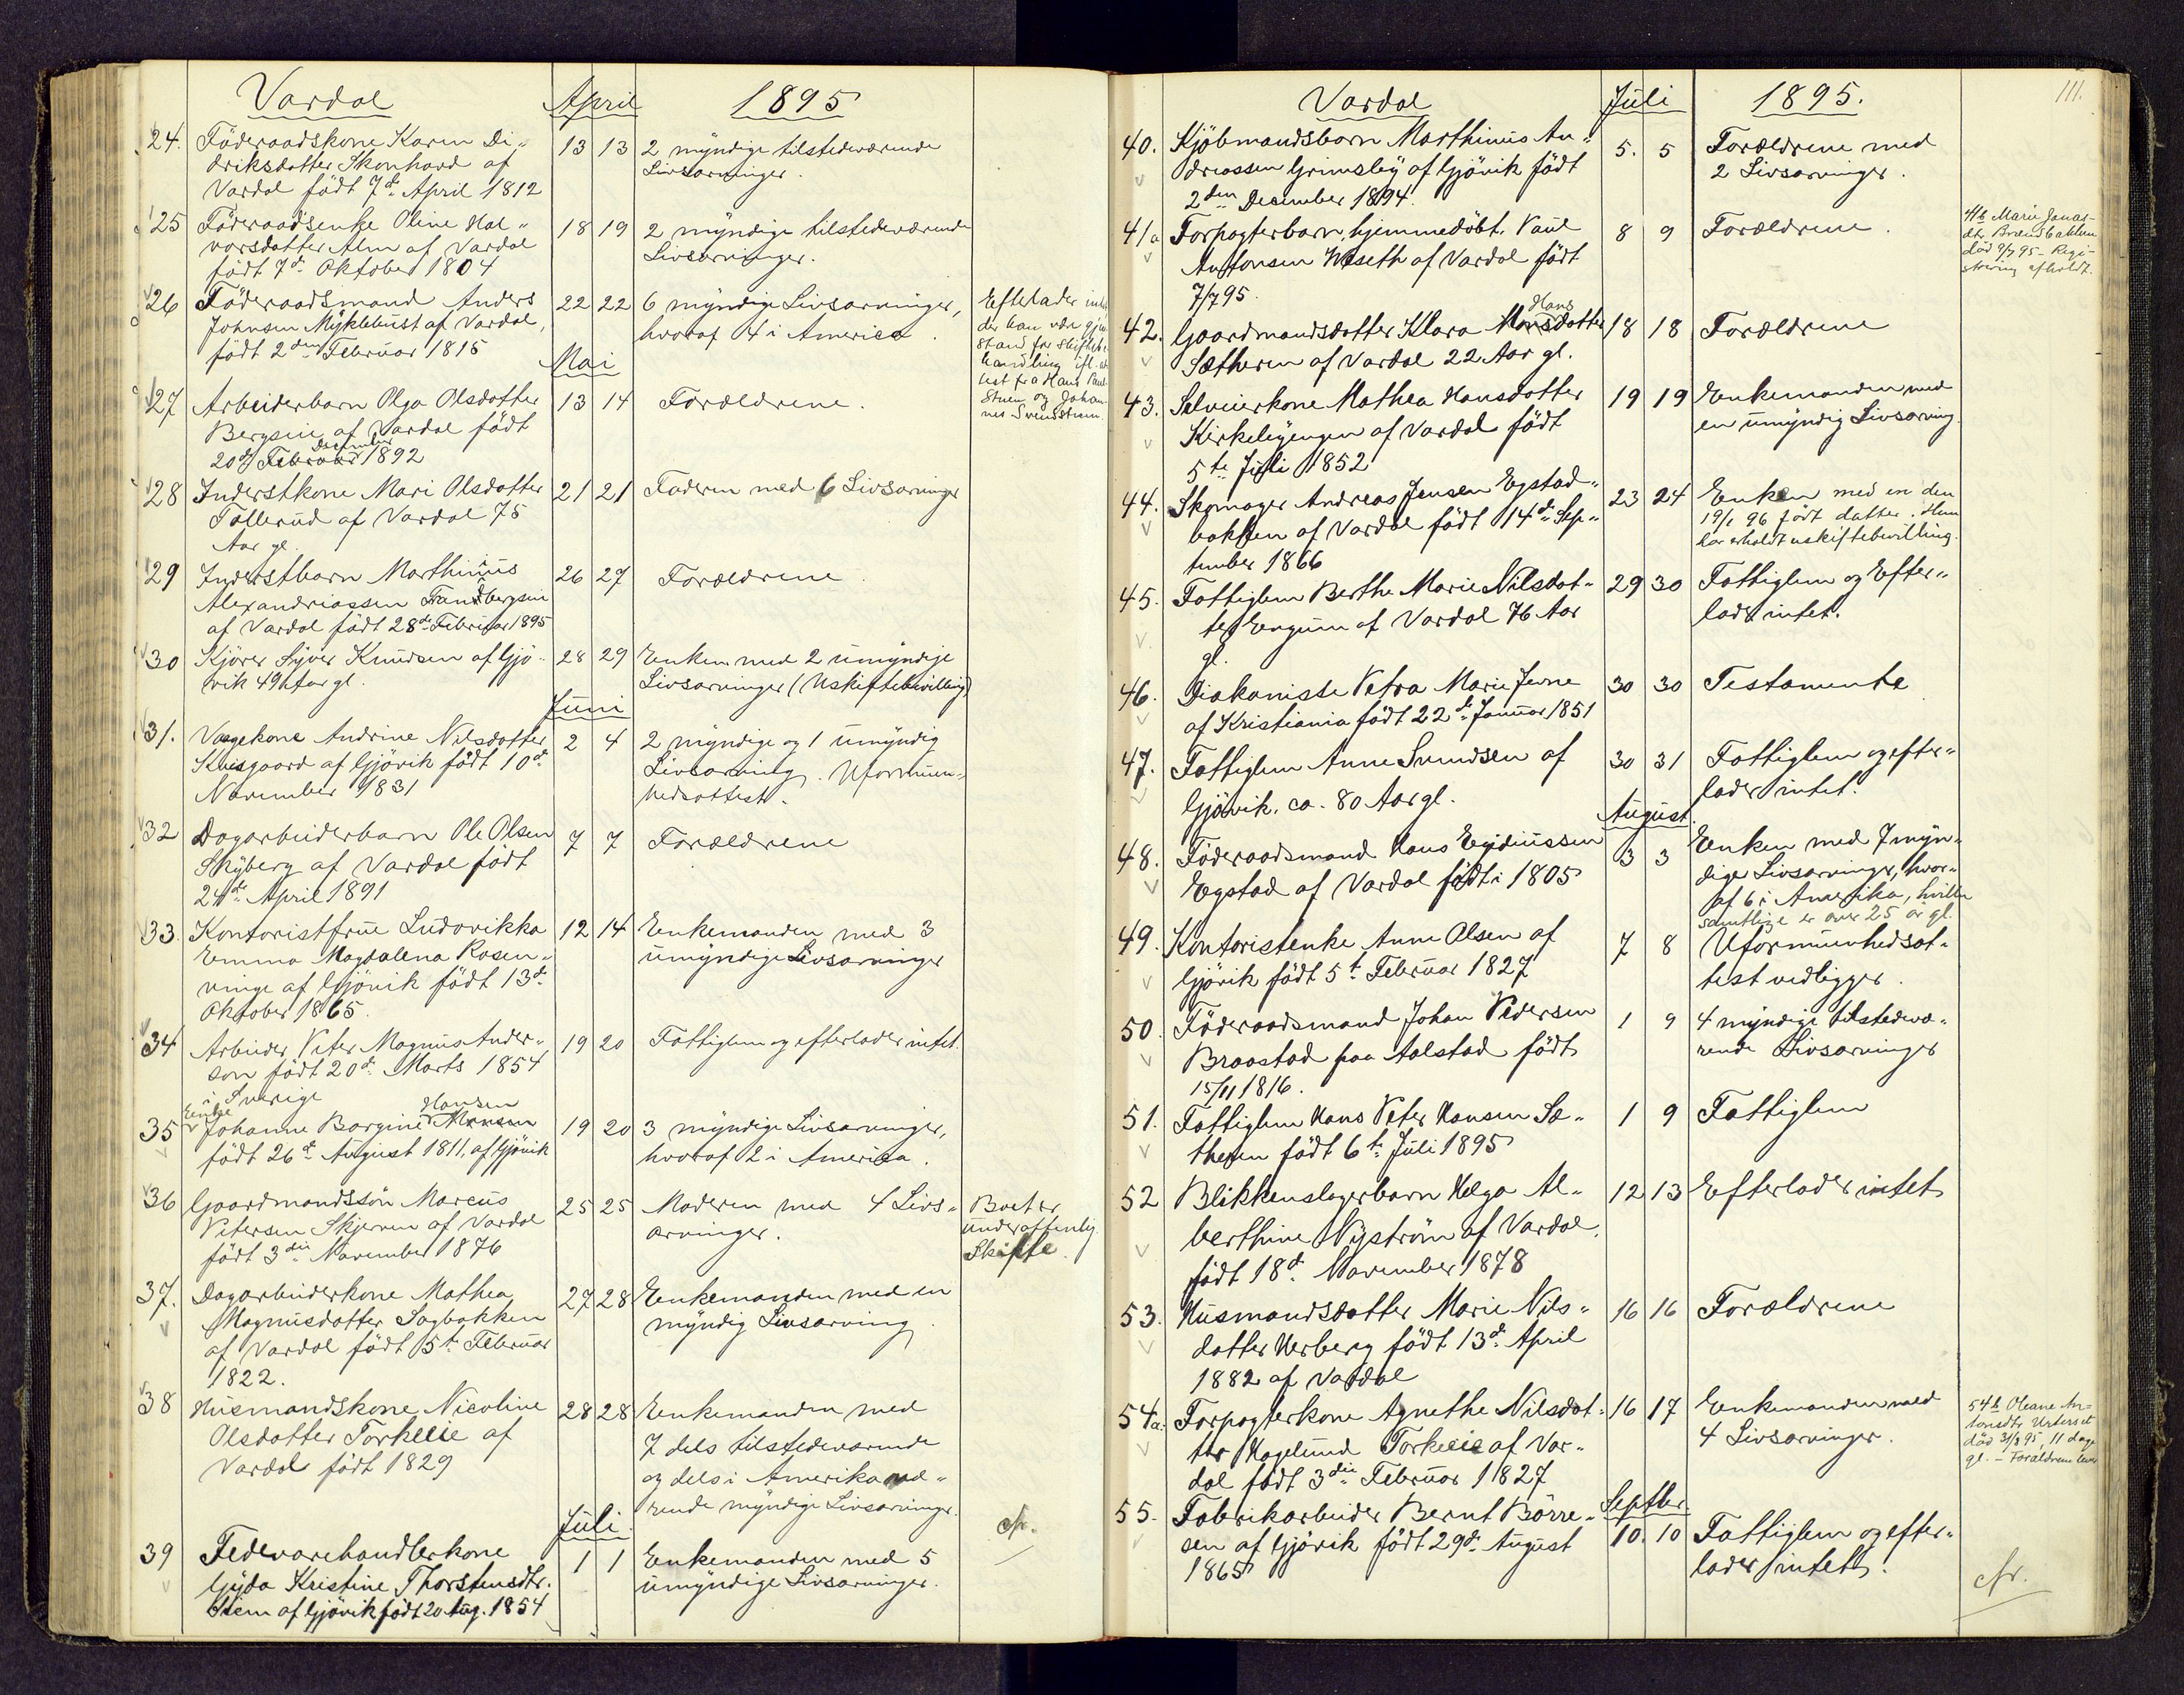 Vardal April 1895
24. Föderaadskone Karen Di„ 13 13 2 myndige tilstedeværende
driksdatter Skonhovd af Livsarvinger.
Vardal født 7de April 1812
25 Föderaadsenke Oline Hal„ 18 19 2 myndige tilstedeværende
vorsdatter Alm af Vardal Livsarvinger.
født 7de Oktober 1804
26 Föderaadsmand Anders 22 22 6 myndige Livsarvinger, Efterlader
Johnsen Myklebust af Vardal, hvoraf 4 i America.
født 2den Februar 1815
stand for
handling
test fra Hans
og Johan-
nes
Mai
27 Arbeiderbarn Olga Olsdatter 13 14 Forældrene.
af Vardal født
20de Februar December 1892
28 Inderstkone Mari Olsdatter 21 21 Faderen med 6 Livsarvinger
Tollerud af Vardal 75
Aar gl.
29 Inderstbarn Marthinius 26 27 Forældrene
Alexandriassen
af Vardal født 28de Februar 1895
30 Kjörer Syver Knudsen af Gjö- 28 29 Enken med 2 umyndige
vik 49 Aar gl. Livsarvinger (Uskiftebevilling)
Juni
31. Andrine Nilsdatter 2 4 2 myndige og 1 umyndig
af Gjövik født 10de Livsarving. Uformuen-
November 1831 hedsattest.
32 Dagarbeiderbarn Ole Olsen 7 7 Forældrene
Skyberg af Vardal født
24de April 1891
33. Kontoristfrue Ludovikka 12 14 Enkemanden med 3
Emma Magdalena Rosen„ umyndige Livsarvinger
vinge af Gjövik født 13de
Oktober 1865.
34 Arbeider Peter Magnus Ander„ 19 20 Fattiglem og efterlader intet.
son født 20de Marts 1854
i Sverige
35 Enke Johanne Borgine Hansen 19 20 3 myndige Livsarvinger,
født 26de August 1811, af Gjövik hvoraf 2 i America.
36 Gaardmandssön Marcus 25 25 Moderen med 4 Livs„ Boet er
Petersen Skjerven af Vardal arvinger. under offentlig
født 3die November 1876 Skifte.
37. Dagarbeiderkone Mathea 27 28 Enkemanden med en
Magnusdatter Sagbakken myndig Livsarving.
af Vardal født 5te Februar
1822.
38 Husmandskone Nicoline 28 28 Enkemanden med
Olsdatter Torkeleie af 7 dels tilstedeværende
Vardal født 1829 og dels i Amerika væ„
rende myndige Livsarvinger.
Juli
39 Fedevarehandlerkone 1 1 Enkemanden med 5
Gyda Kristine Thorstensdtr. umyndige Livsarvinger.
af Gjövik født 20 Aug. 1854
Vardal Juli 1895. 111.
40. Kjöbmandsbarn Marthinius An„ 5. 5 Forældrene med
dreassen Grimsby af Gjövik født 2 Livsarvinger.
2den December 1894.
41a Forpagterbarn, hjemmedöbt, Paul 8 9 Forældrene.
Antonsen af Vardal født
7/7 95.
41b Marie
dtr.
död 9/7 95 - Regi-
strering afholdt.
42. Gaardmandsdatter Klara Hansdatter 18 18 Forældrene
Sætheren af Vardal 22 Aar gl.
43. Selveierkone Mathea Hansdatter 19 19 Enkemanden med
Kirkebyengen af Vardal født en umyndig Livsarving
5te Juli 1852
44. Skomager Andreas Jensen Egstad- 23 24 Enken med en den
bakken af Vardal født 14de Sep„ 19/1 96 født datter. Hun
tember 1866 har erholdt uskiftebevilling.
45. Fattiglem Berthe Marie Nilsdat- 29 30 Fattiglem og Efter„
ter Engum af Vardal 76 Aar lader intet.
gl.
46. Diakonisse Petra Marie Jevne 30 30 Testamente
af Kristiania født 22de Januar 1851
47. Fattiglem Anne Svendsen af 30 31 Fattiglem og efter„
Gjövik, ca. 80 Aar gl. lader intet.
August
48. Föderaadsmand Hans Egidiussen 3 3 Enken med 7 myn-
Egstad af Vardal født i 1805 dige Livsarvinger, hvor-
af 6 i Amerika, hvilke
samtlige er over 25 år gl.
49. Kontoristenke Anne Olsen af 7 8 Uformuenhedsat-
Gjövik født 5te Februar 1827 test vedligger.
50. Föderaadsmand Johan Pedersen 1 9 4 myndige tilstedevæ-
Braastad paa Aalstad født rende Livsarvinger
15/11 1816.
51. Fattiglem Hans Peter Hansen Sæ- 1 9 Fattiglem
theren født 6te Juli 1895
52 Blikkenslagerbarn Helga Al- 12 13 Efterlader intet
berthine Nyström af Vardal,
født 18de November 1878
53. Husmandsdatter Marie Nils- 16 16 Forældrene
datter Herberg født 13de April
1882 af Vardal
54a. Forpagterkone Agnethe Nilsdat- 16 17 Enkemanden med
ter Haglund Torkeleie af Var- 4 Livsarvinger.
dal født 3die Februar 1827
54b Oleane An-
tonsdtr.
död 31/8 95, 11 dage
gl. - Forældrene lever
Septber.
55. Fabrikarbeider Bernt Börre- 10. 10 Fattiglem og efter-
sen af Gjövik født 29de August lader intet.
1865